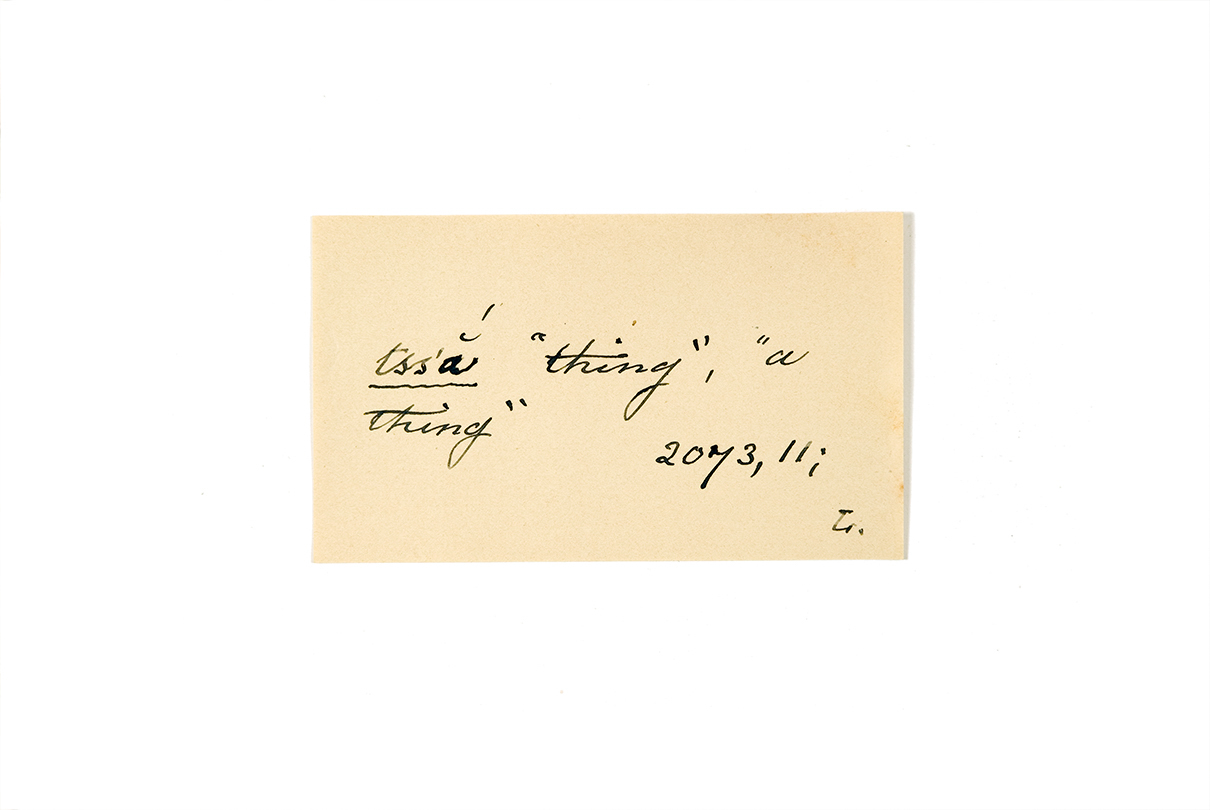 tsśắ “thing”, “a
thing”
2073, 11;
Lr.